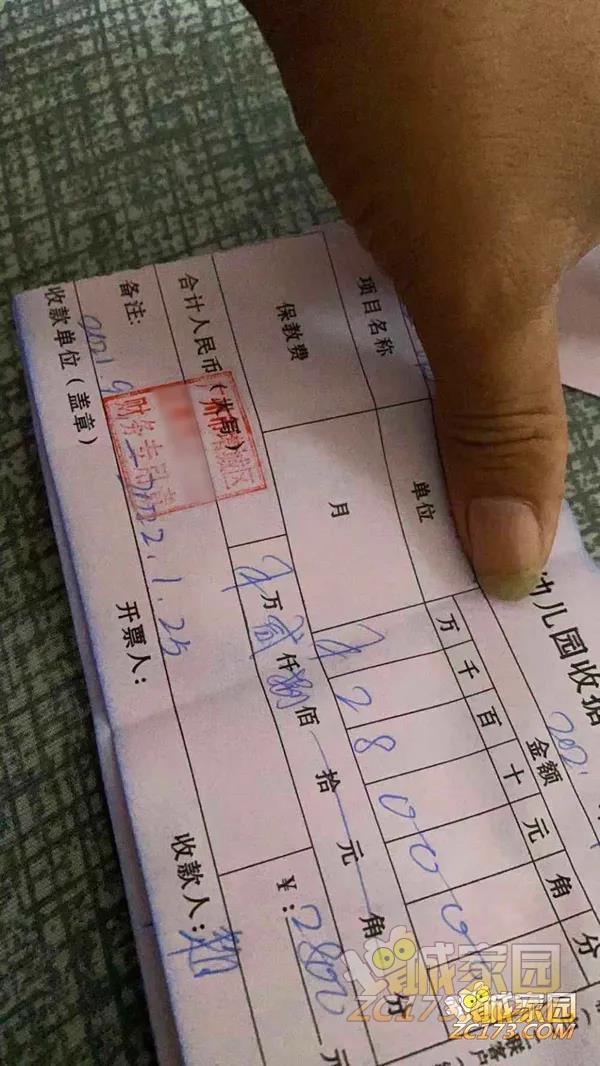 幼儿园收据
202
项目名称 单位 金额
万 千 百 十 元 角 分
保教费 月 ¥ 2 8 0 0 0 0
合计人民币(大写) 万 贰 仟 捌 佰 拾 元 角 分 ¥:2800 元
备注: 2021.9 — 2022.1.25
收款单位(盖章) 开票人: 收款人:
财务专用章
诚家园
ZC173.COM
诚家园
ZC173.COM